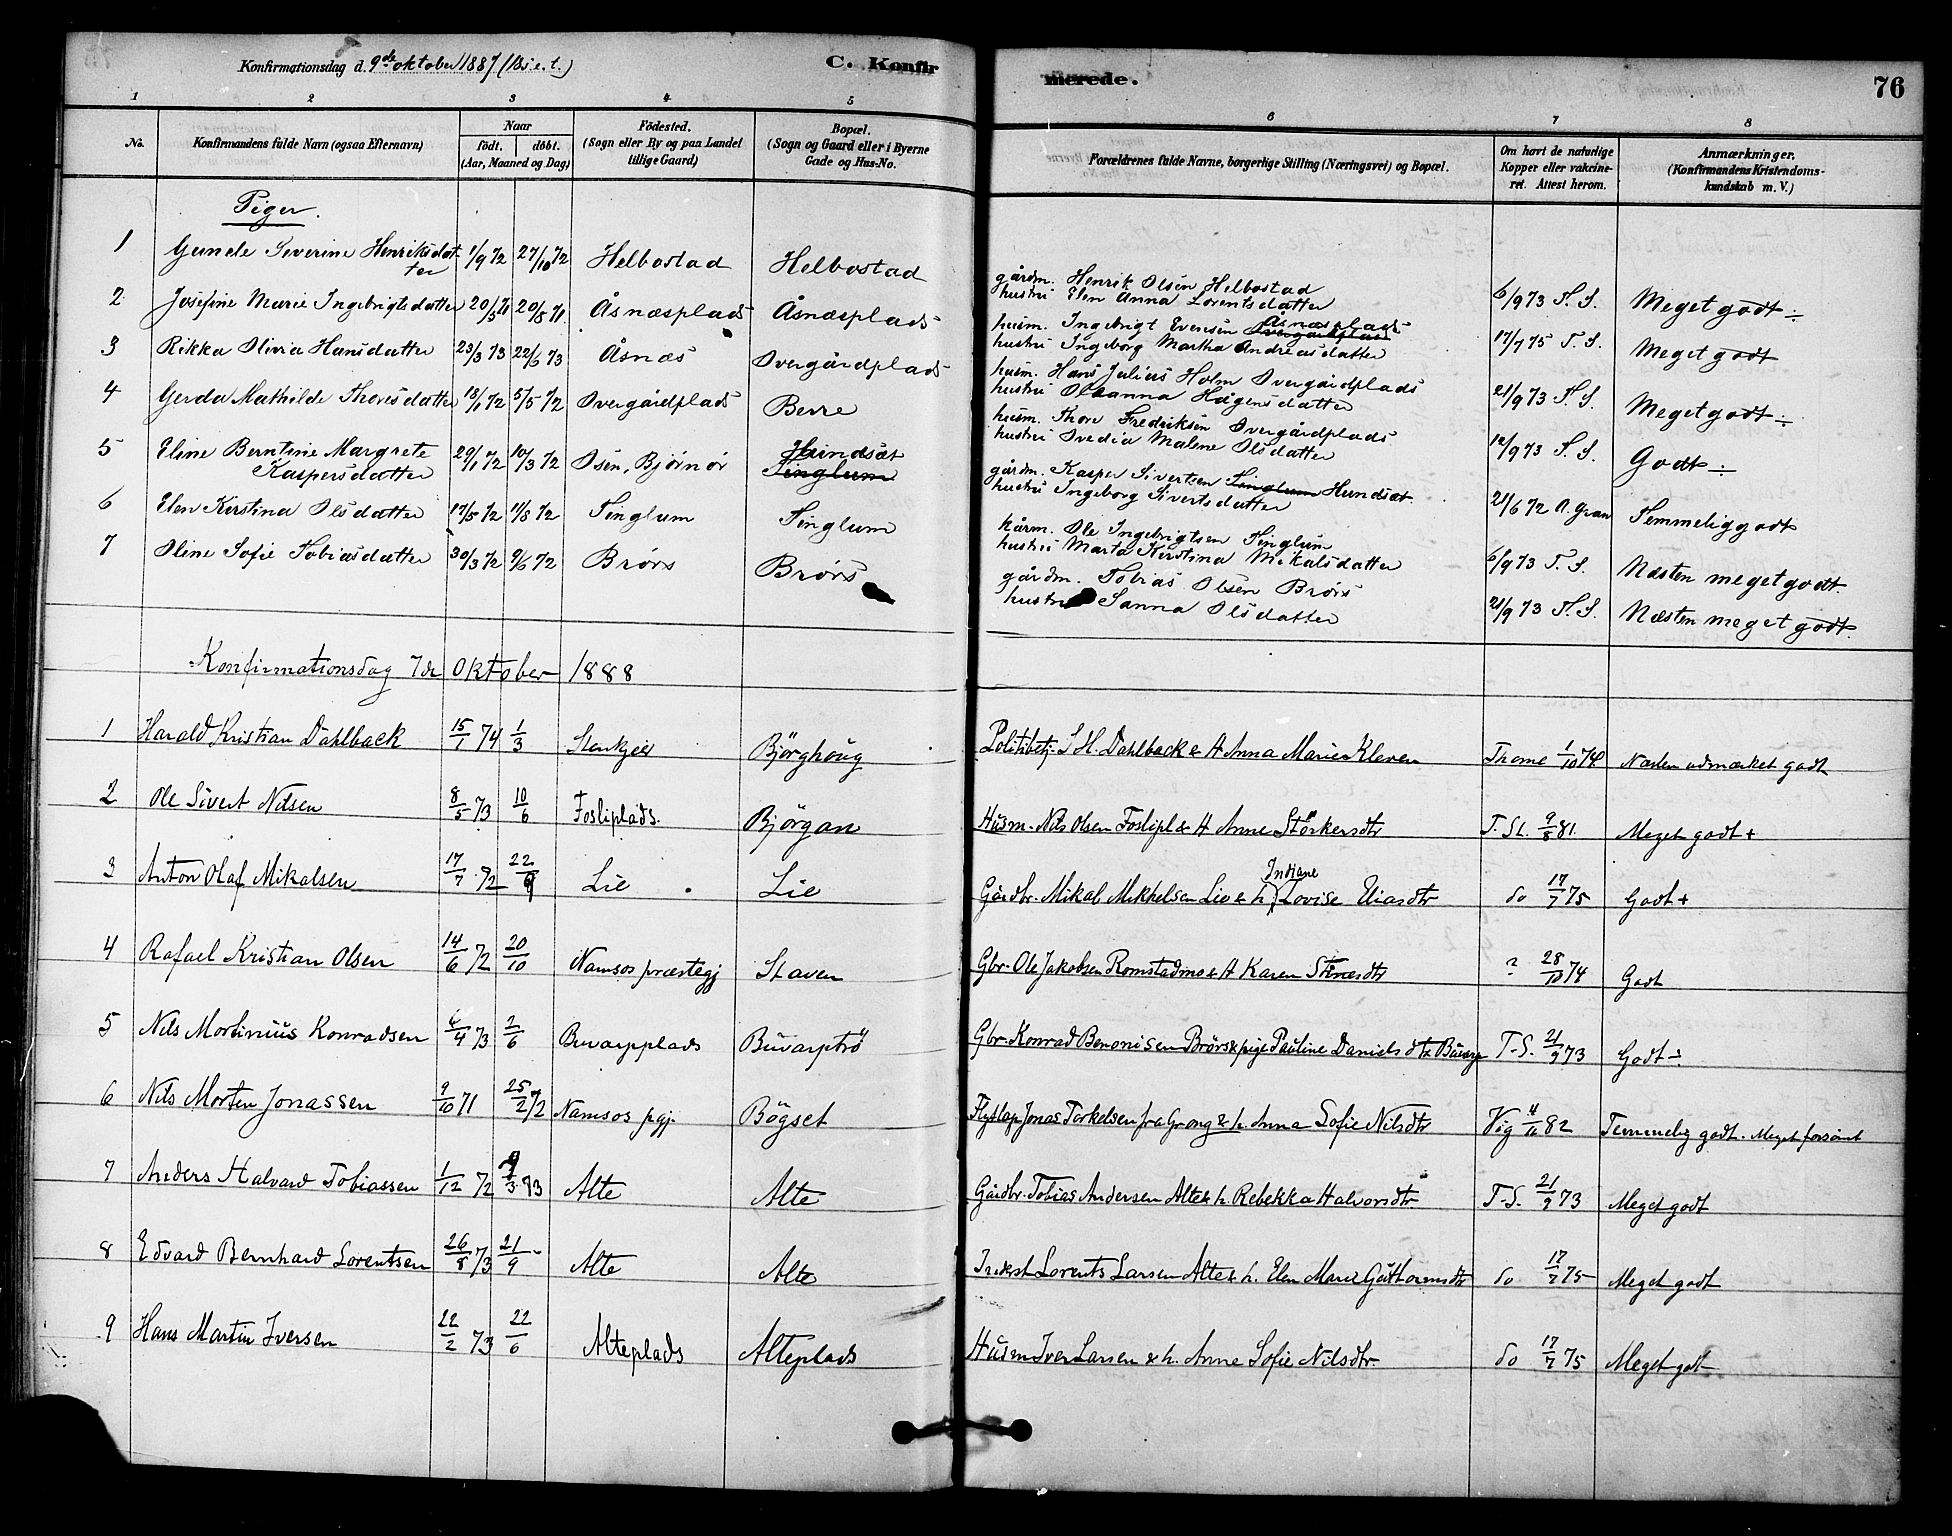 Konfirmationsdag d. 9de oktober 1887 (18 s. e. t.)
C. Konfirmerede.
76
1 2 3 4 5 6 7 8
No. Konfirmandens fulde Navn (ogsaa Efternavn) Naar födt. döbt. (Aar, Maaned og Dag) Födested. (Sogn eller By og paa Landet tillige Gaard) Bopæl. (Sogn og Gaard eller i Byerne Gade og Hus-No. Forældrenes fulde Navne, borgerlige Stilling (Næringsvei) og Bopæl. Om havt de naturlige Kopper eller vakcineret. Attest herom. Anmærkninger. (Konfirmandens Kristendomskundskab m. V.)
Piger.
1 Gunele Severine Henriksdatter 1/9 72 27/10 72 Helbostad Helbostad gårdm. Henrik Olsen Helbostad hustru Elen Anna Lorentsdatter 6/9 73 T. S. Meget godt ÷
2 Josefine Marie Ingebrigtsdatter 20/5 71 20/8 71 Åsnæsplads Åsnæsplads husm. Ingebrigt Evensen Overgårdplads Åsnæsplads hustru Ingeborg Martha Andreasdatter 17/7 75 T. S. Meget godt
3 Rikka Olivia Hansdatter 23/3 73 22/6 73 Åsnæs Overgårdplads husm. Hans Julius Holm Overgårdplads hustru Olsanna Hagensdatter 21/9 73 T. S. Meget godt ÷
4 Gerda Mathilde Thoresdatter 18/1 72 5/5 72 Overgårdplads Berre husm. Thore Fredriksen Overgårdplads hustru Ovedia Malene Olsdatter 12/9 73 T. S. Godt ÷
5 Eline Berntine Margrete Kaspersdatter 29/1 72 10/3 72 Osen, Bjørnør Hundsæt Tinglum gårdm. Kasper Sivertsen Tinglum Hundsæt hustru Ingeborg Sivertsdatter 21/6 72 A. Gran Temmelig godt
6 Elen Kirstina Olsdatter 17/5 72 11/8 72 Tinglum Tinglum kårm. Ole Ingebrigtsen Tinglum hustru Marta Kirstina Mikalsdatter 6/9 73 T. S. Næsten meget godt.
7 Oline Sofie Tobiasdatter 30/3 72 9/6 72 Brørs Brørs gårdm. Tobias Olsen Brørs hustru Sanna Olsdatter 21/9 73 T. S. Næsten meget godt.
Konfirmationsdag 7de Oktober 1888
1 Harald Kristian Dahlback 15/1 74 1/3 Stenkjer Björghoug Politibetj. S. H. Dahlback & H Anna Marie Kleven Thome 1/10 74 Næsten udmærket godt
2 Ole Sivert Nilsen 8/5 73 10/6 Fosliplads Björgan Husm. Nils Olsen Foslipl & H Anne Störkersdtr T. St. 9/8 81. Meget godt +
3 Anton Olaf Mikalsen 17/7 72 22/9 Lie Lie Gårdbr. Mikal Mikkelsen Lie & h. Indiane Lovise Eliasdtr do 17/7 75 Godt +
4 Rafael Kristian Olsen 14/6 72 20/10 Namsos præstegj Staven Gbr. Ole Jakobsen Romstadmo & H Karen Stenesdtr ? 28/10 74 Godt
5 Nils Martinius Konradsen 6/4 73 2/6 Buvarpplads Buvarptrö Gbr. Konrad Benonisen Brörs & pige Pauline Danielsdtr Buvarp T. S. 21/9 73 Godt ÷
6 Nils Morten Jonassen 9/10 71 25/2 72 Namsos pgj. Bögset Flytlap Jonas Torkelsen fra Grong & h. Anna Sofie Nilsdtr Vig 4/11 82 Temmelig godt. Meget forsömt
7 Anders Halvard Tobiassen 1/12 72 9/3 73 Alte Alte Gårdbr. Tobias Andersen Alte & h. Rebekka Halvorsdtr T. S. 21/9 73 Meget godt
8 Edvard Bernhard Lorentsen 26/8 73 21/9 Alte Alte Inderst Lorents Larsen Alte & h. Elen Marie Guttormsdtr do 17/7 75 Meget godt
9 Hans Martin Iversen 22/2 73 22/6 Alteplads Alteplads Husm Iver Larsen & h. Anne Sofie Nilsdtr do 17/7 75 Meget godt